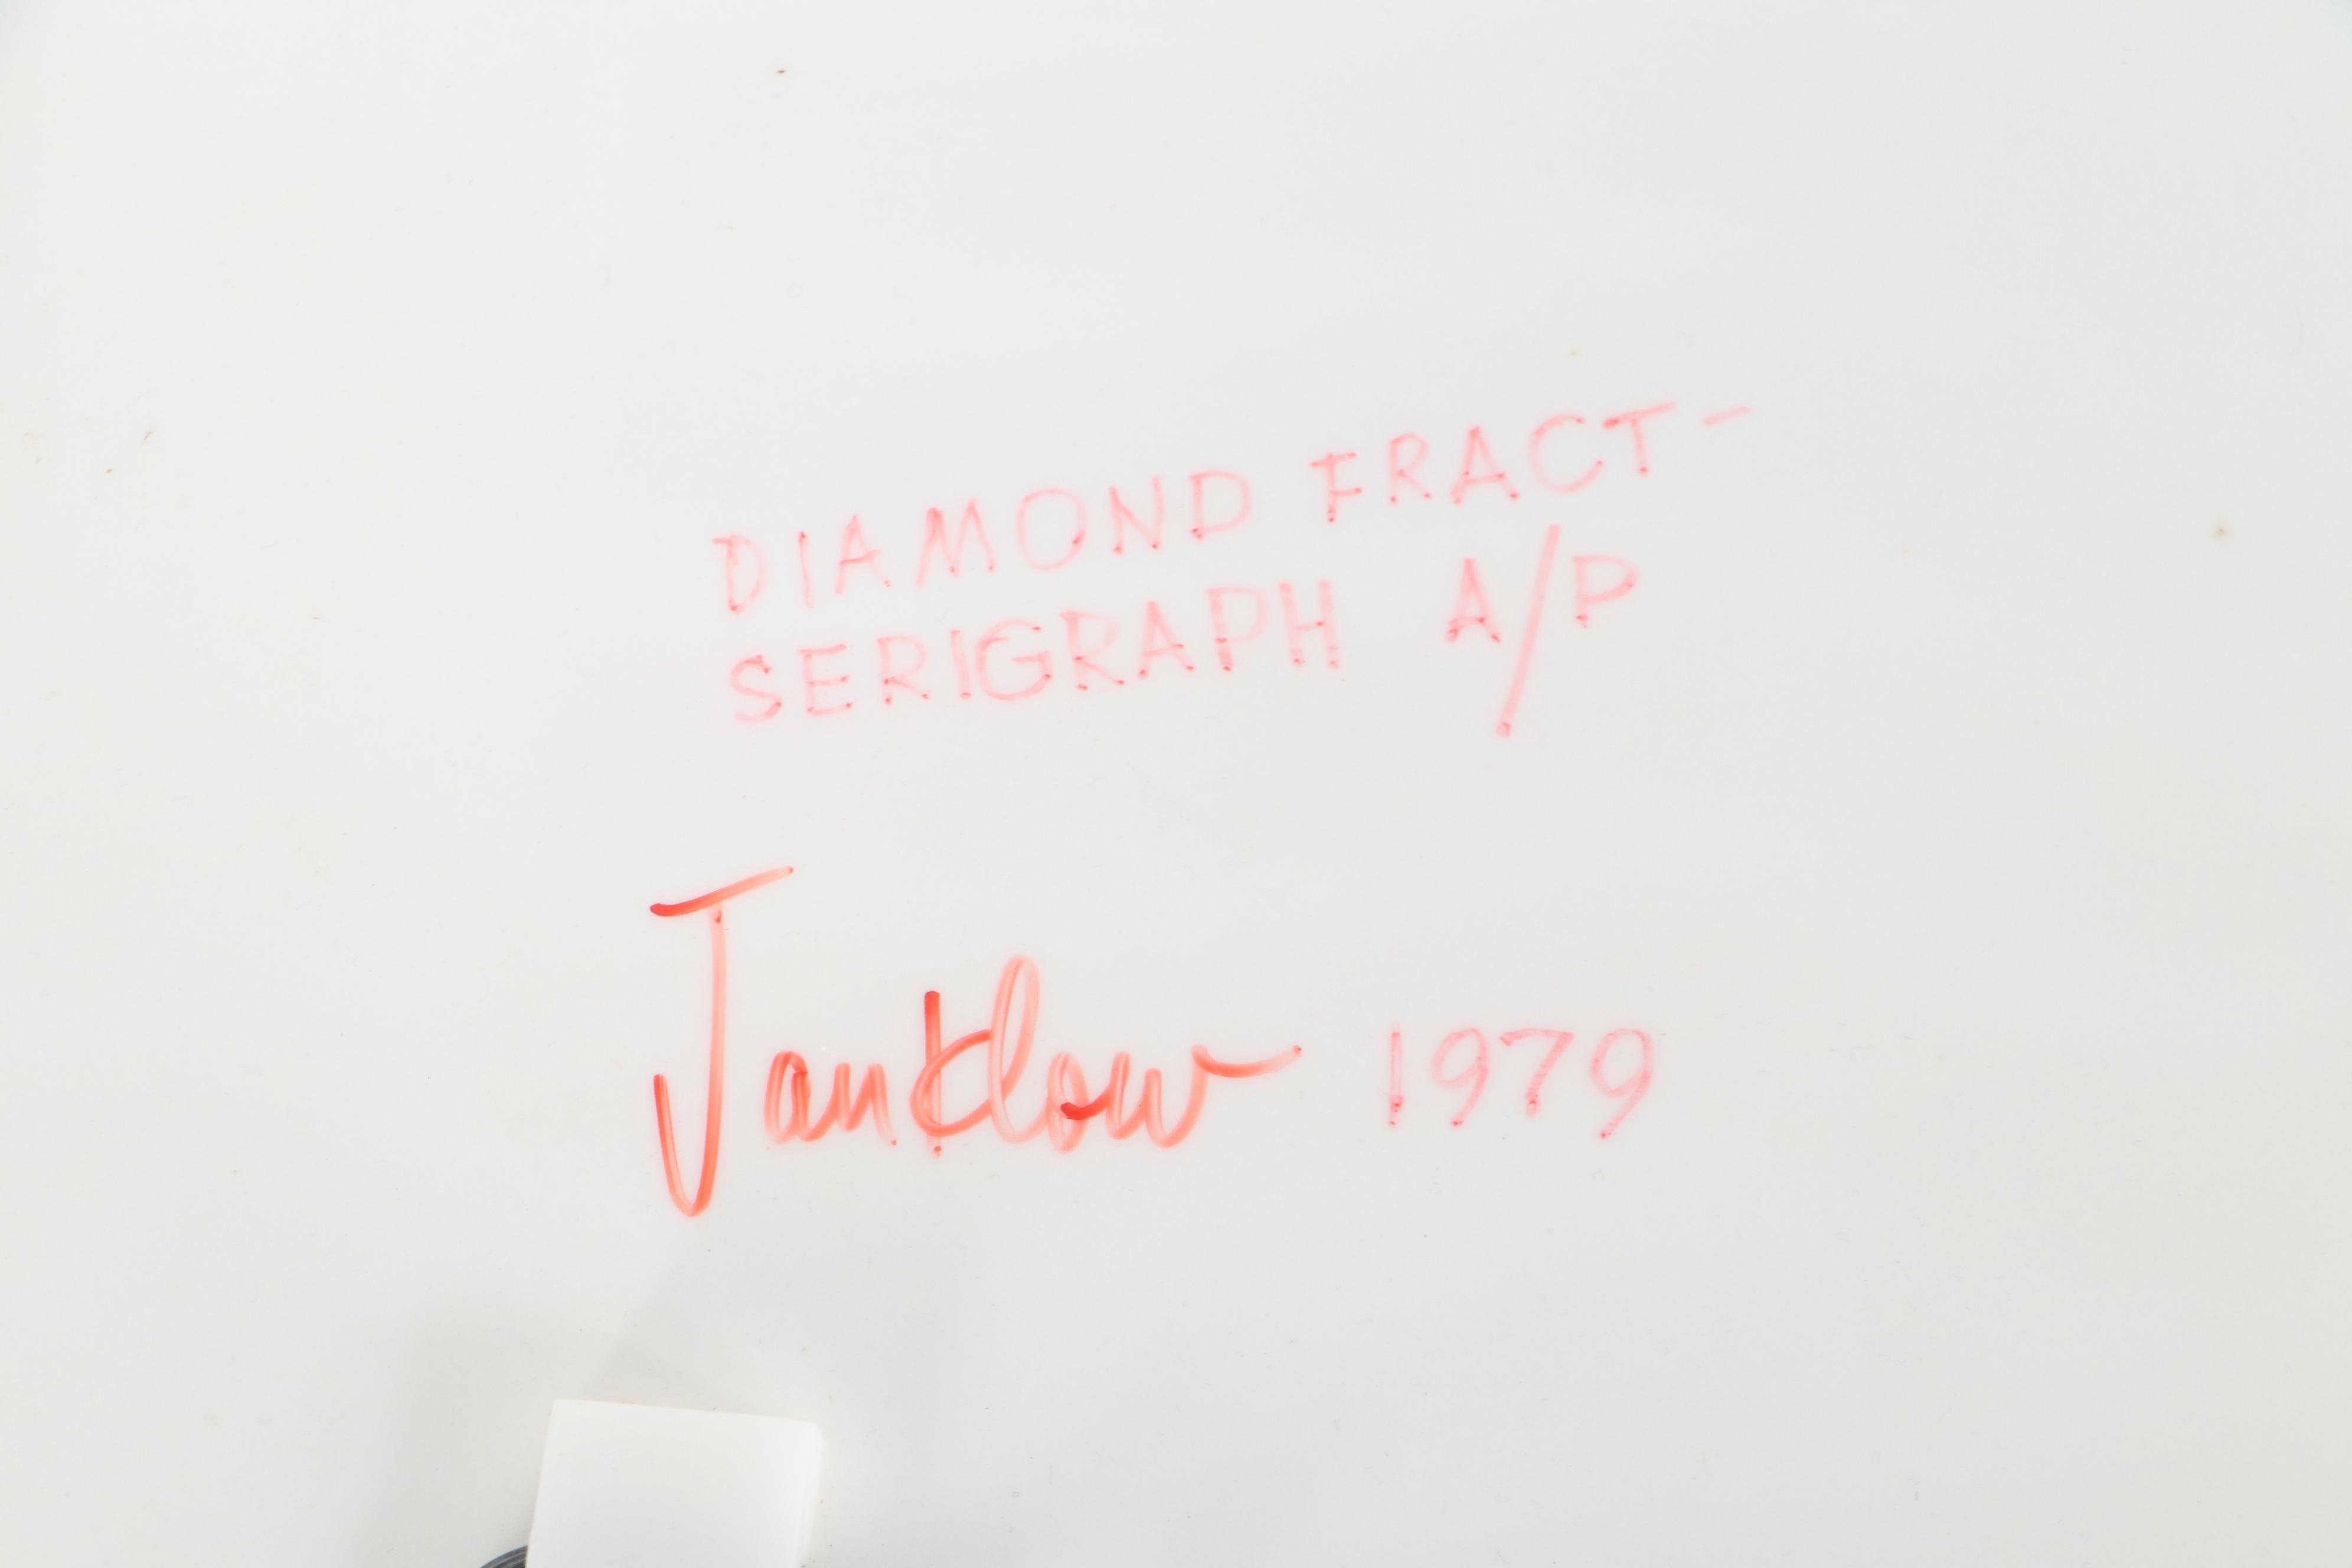 DIAMOND FRACT-
SERIGRAPH A/P
Janklow 1979